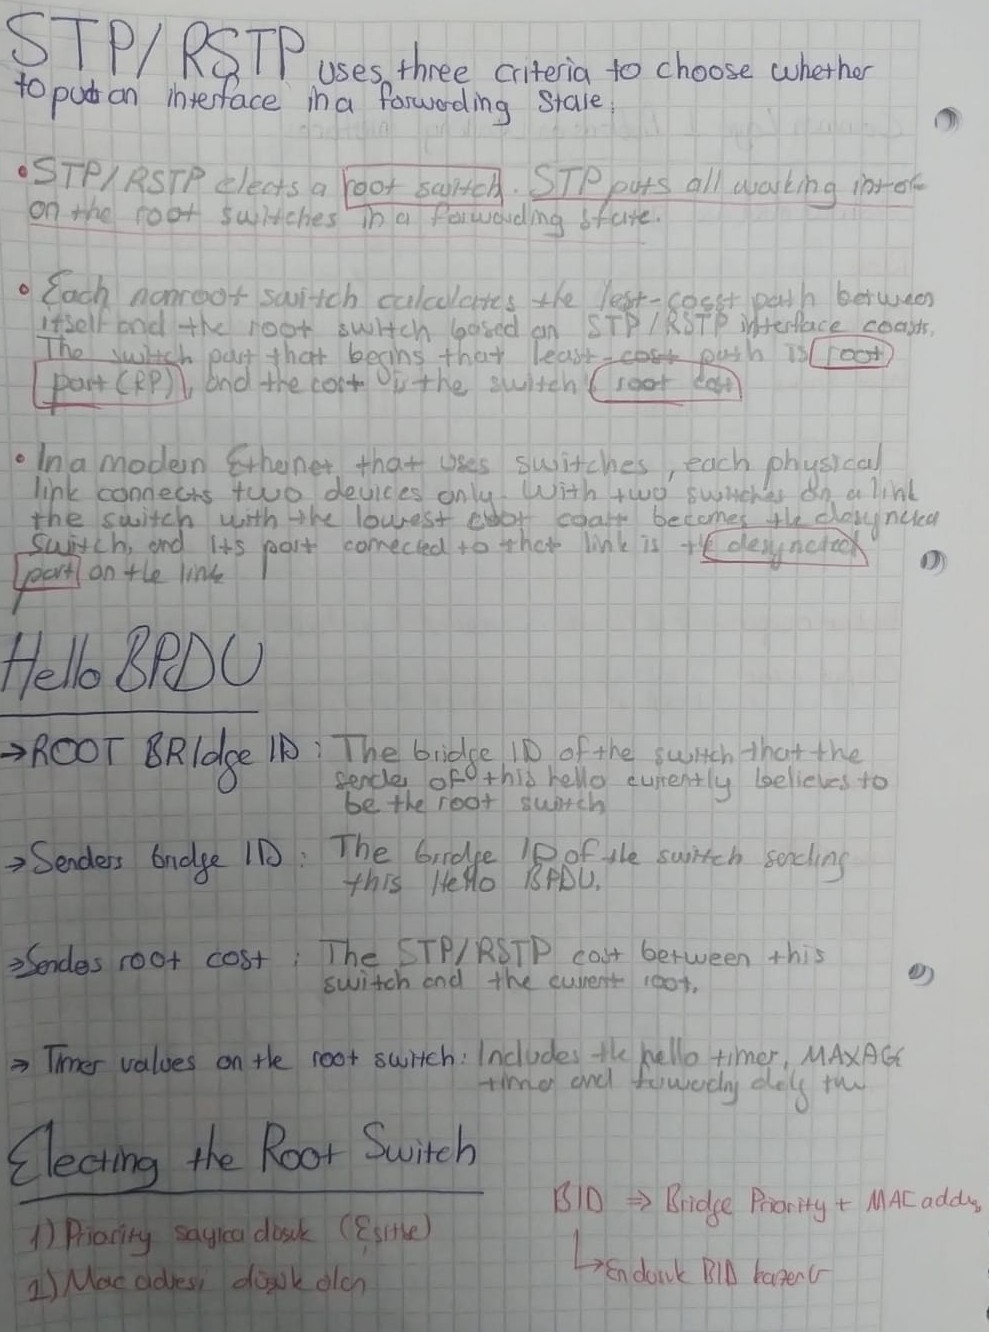 STP/RSTP uses three criteria to choose whether
to put an interface in a forwarding state.
• STP/RSTP elects a root switch. STP puts all working
on the root switches in a forwarding state.
• Each nonroot switch calculates the lest-cost path between
itself and the root switch based on STP/RSTP interface
The switch port that begins that least-cost path is root
port (RP), and the cost the switch root cost
• In a modern Ethernet that uses switches, each physical
link connects two devices only. With two switches on a link
the switch with the lowest root becomes the
switch, and its port connected to that link is the
port on the link
Hello BPDU
→ROOT BRIdge ID : The bridge ID of the switch that the
sender of this hello currently believes to
be the root switch
→Senders bridge ID : The bridge ID of the switch sending
this Hello BPDU.
→Senders root cost : The STP/RSTP cost between this
switch and the current root.
→ Timer values on the root switch: Includes the hello timer, MAXAGE
timer and
Electing the Root Switch
BID ⇒ Bridge Priority + MAC
1) Priority sayıca düşük (Eşitse)
↳En düşük BID kazanır
2) Mac adresi düşük olan